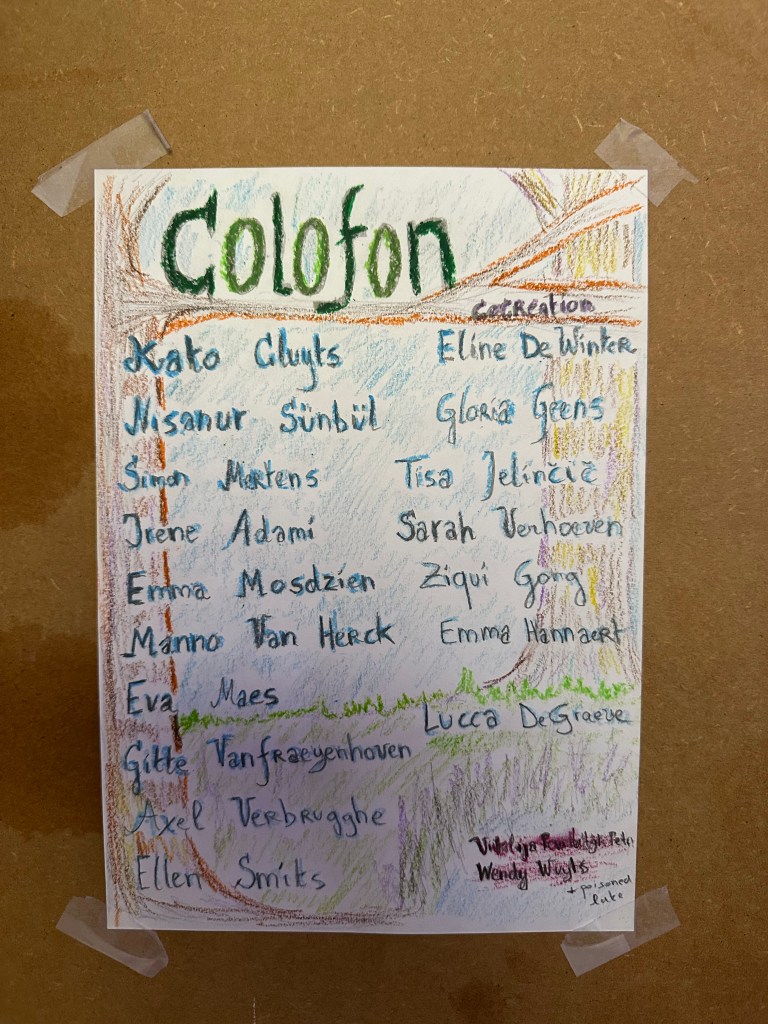 Colofon
cocreation
Kako Cluyts
Nisanur Sünbül
Simon Mertens
Irene Adami
Emma Mosdzien
Manno Van Herck
Eva Maes
Gitte Vanfraeyenhoven
Axel Verbrugghe
Ellen Smits
Eline De Winter
Gloria Geens
Tisa Jelinčič
Sarah Verhoeven
Ziqui Gong
Emma Hannaert
Lucca DeGraeve
Wendy Wuyts
+ poisoned
lake